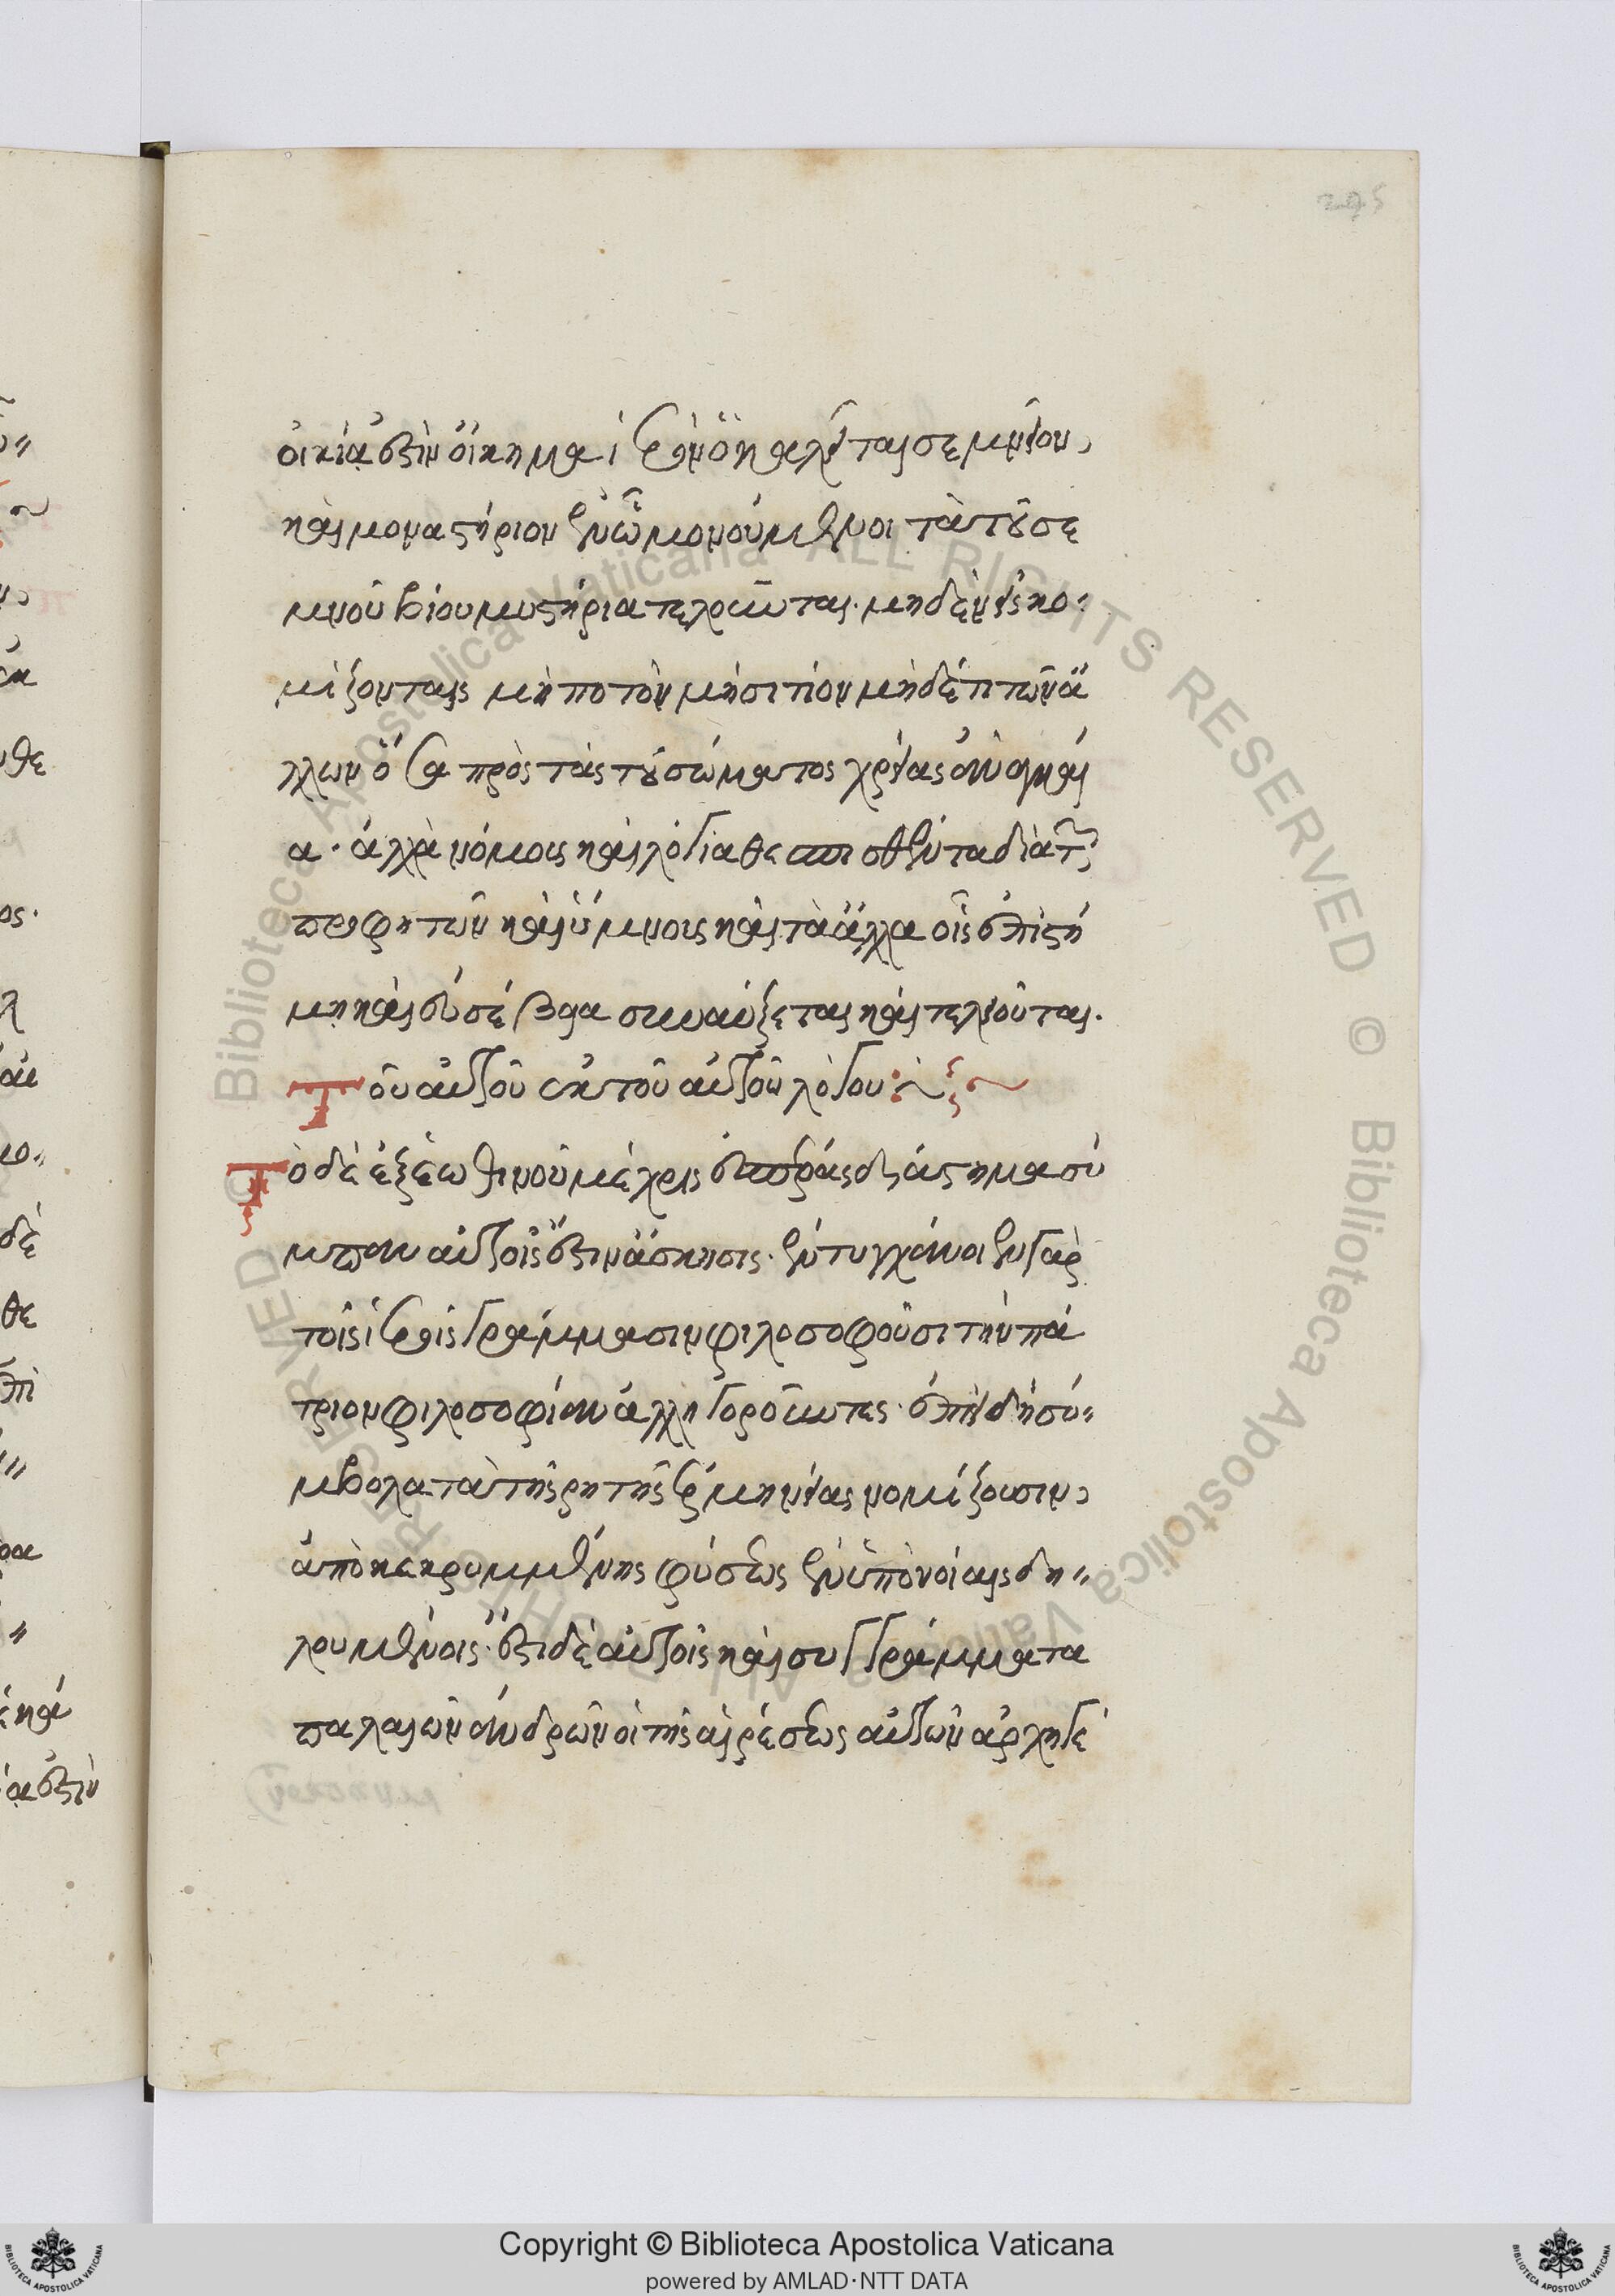 295
οἰκία ἐστὶν οἴκημα ἱερὸν ὃ καλεῖται σεμνεῖον
καὶ μοναστήριον ἐν ᾧ μονούμενοι τὰ τοῦ σε
μνοῦ βίου μυστήρια τελοῦνται· μηδὲν εἰσκο
μίζοντες μὴ ποτὸν μὴ σιτίον μηδέ τι τῶν ἄ
λλων ὅσα πρὸς τὰς τοῦ σώματος χρείας ἀναγκαῖ
α· ἀλλὰ νόμους καὶ λόγια θεσπισθέντα διὰ
προφητῶν καὶ ὕμνους καὶ τὰ ἄλλα οἷς ἐπιστή
μη καὶ εὐσέβεια συναύξεται καὶ τελειοῦται.
Τοῦ αὐτοῦ ἐκ τοῦ αὐτοῦ λόγου:
Τὸ δὲ ἐξ ἑωθινοῦ μέχρις ἑσπέρας διάστημα σύ
μπαν αὐτοῖς ἐστιν ἄσκησις· ἐντυγχάνοντες γὰρ
τοῖς ἱεροῖς γράμμασιν φιλοσοφοῦσι τὴν πά
τριον φιλοσοφίαν ἀλληγοροῦντες· ἐπειδὴ σύ
μβολα τὰ τῆς ῥητῆς ἑρμηνείας νομίζουσιν
ἀποκεκρυμμένης φύσεως ἐν ὑπονοίαις δη
λουμένοις· ἔστι δὲ αὐτοῖς καὶ συγγράμματα
παλαιῶν ἀνδρῶν οἱ τῆς αἱρέσεως αὐτῶν ἀρχηγέ
Copyright © Biblioteca Apostolica Vaticana
powered by AMLAD·NTT DATA